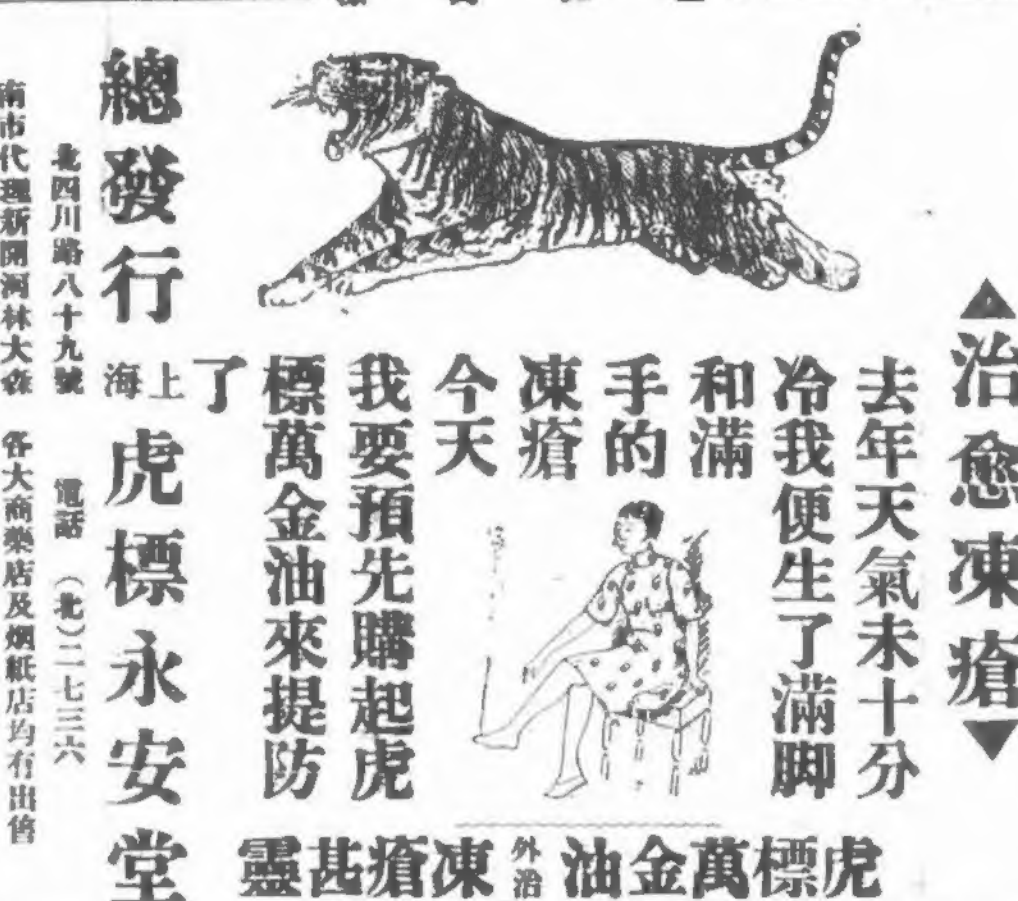 ▲治愈凍瘡▼
去年天氣未十分
冷我便生了滿脚
和滿
手的
凍瘡
今天
我要預先購起虎
標萬金油來提防
了
虎標萬金油外治凍瘡甚靈
總發行
上海
虎標永安堂
北四川路八十九號 電話 (北)二七三六
南市代理新開河林大森 各大商藥店及烟紙店均有出售